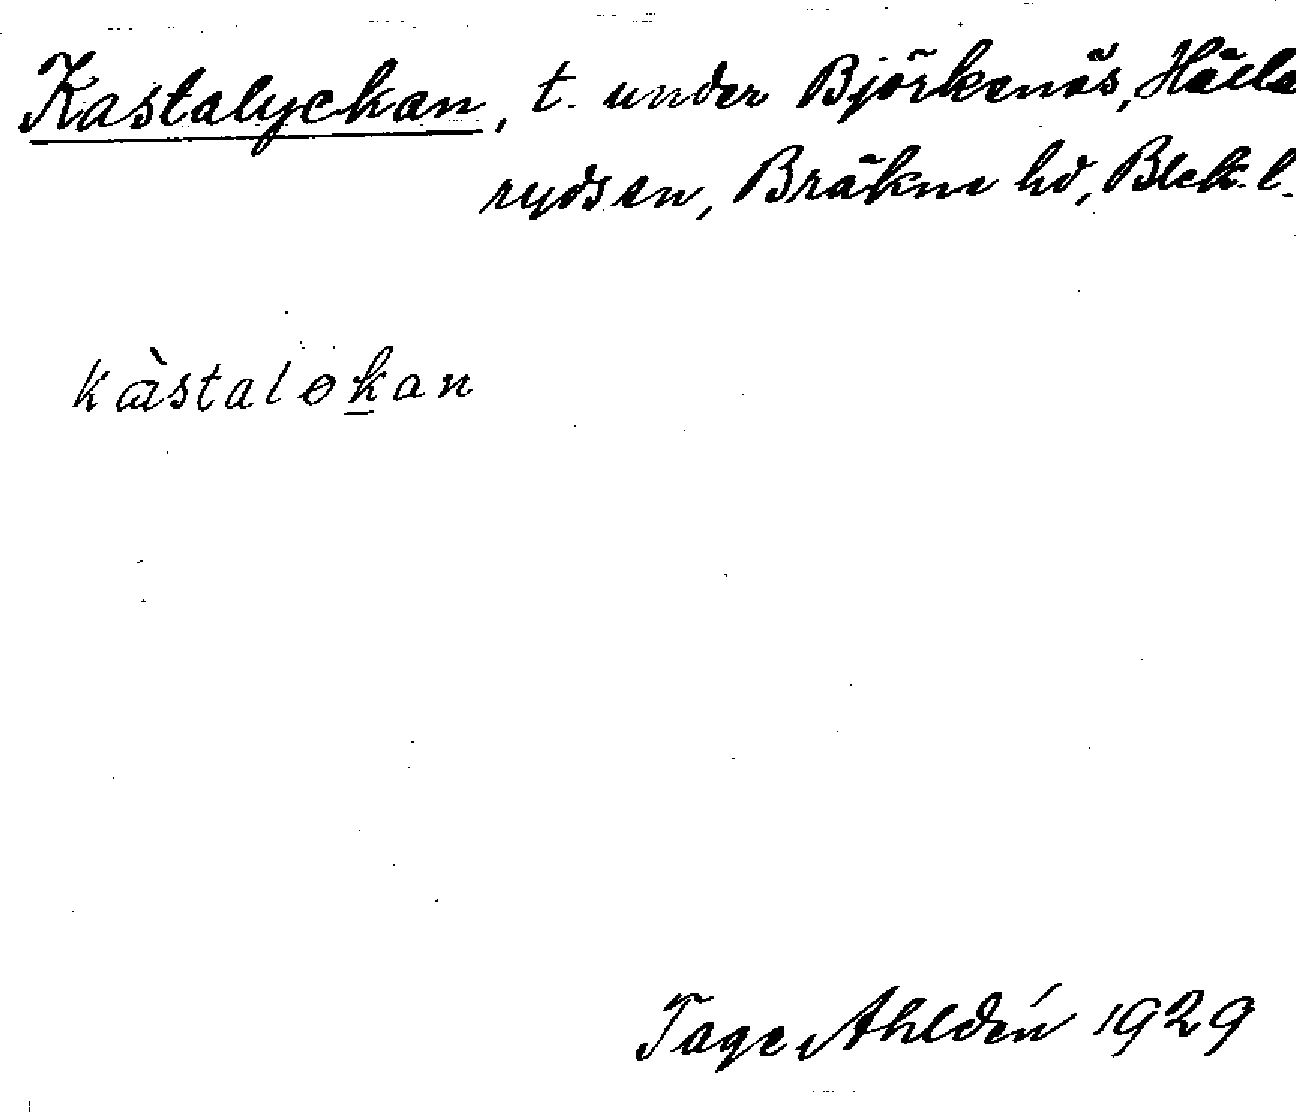 Kastalyckan, t. under Björkenäs, Hälla
rydsm, Bräkne hd, Blek. l.
kàstaløkan
Tage Ahldén 1929